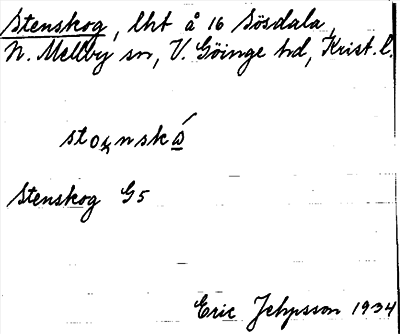 Stenskog, lht å 16 Sösdala,
N. Mellby sn, V. Göinge hd, Krist. l.
Stenskog G5
Eric Jepsson 1934